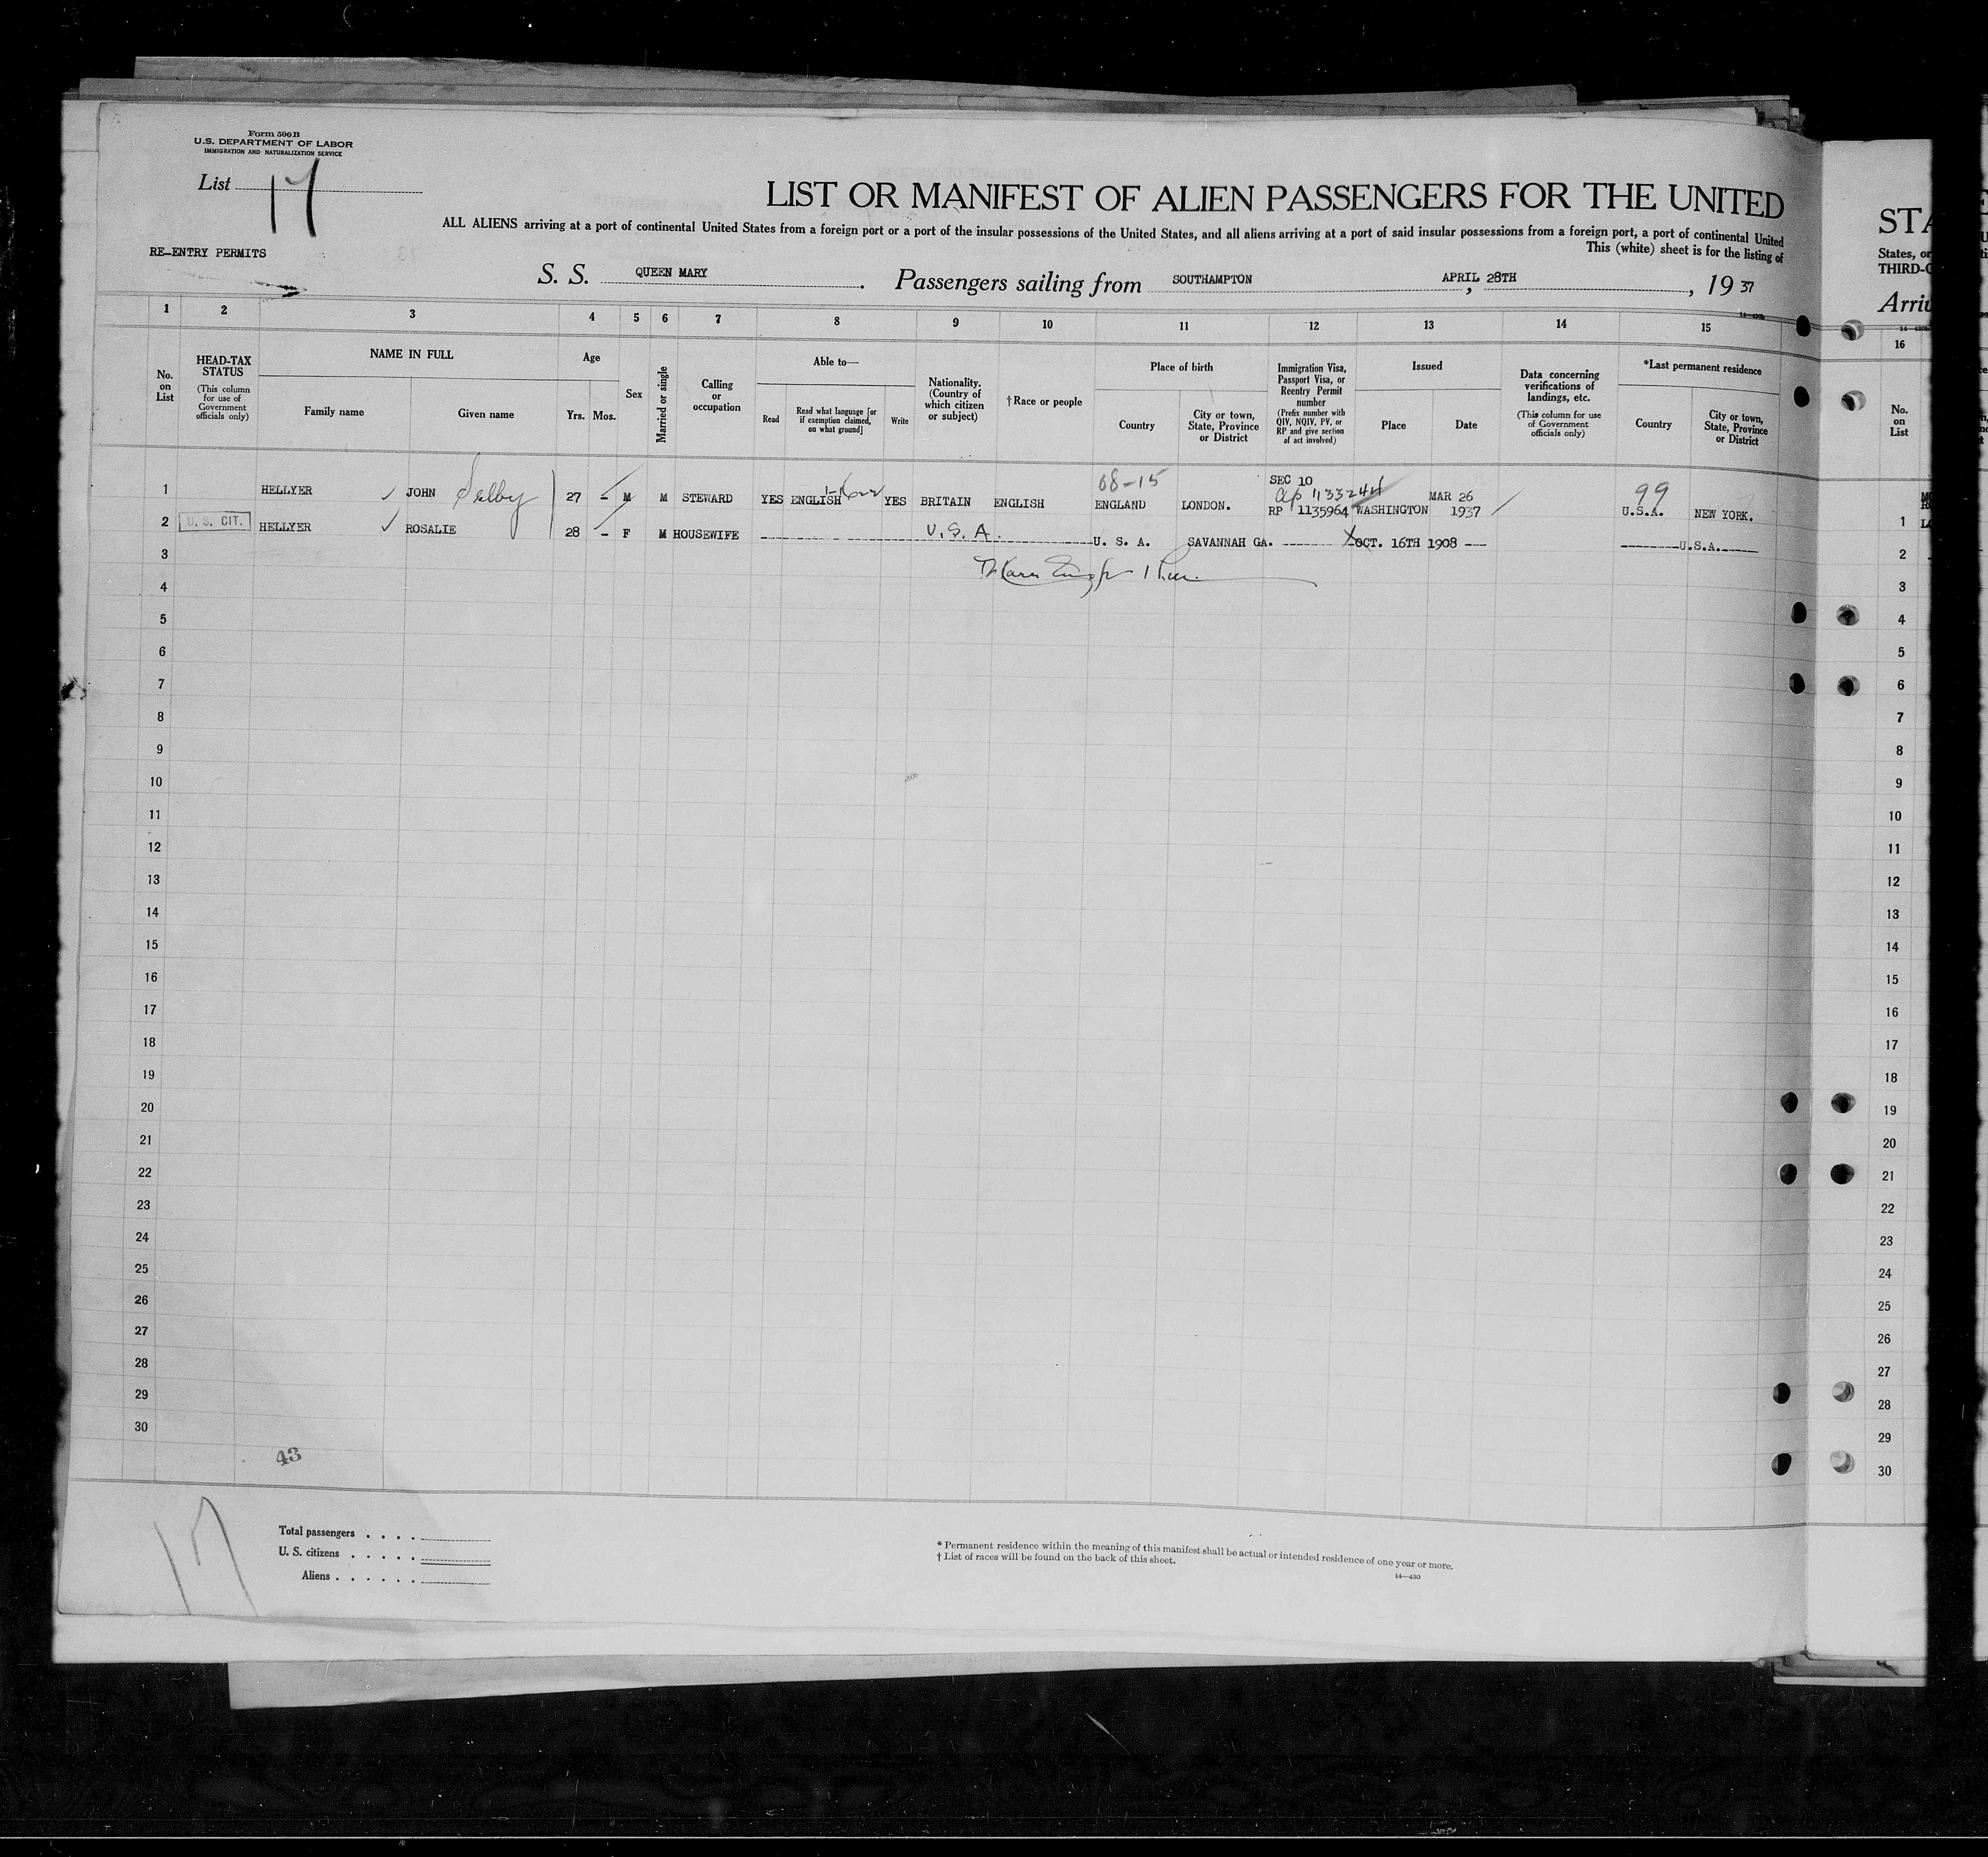 Form 500B
U.S. DEPARTMENT OF LABOR
IMMIGRATION AND NATURALIZATION SERVICE
List 17
LIST OR MANIFEST OF ALIEN PASSENGERS FOR THE UNITED
ALL ALIENS arriving at a port of continental United States from a foreign port or a port of the insular possessions of the United States, and all aliens arriving at a port of said insular possessions from a foreign port, a port of continental United
This (white) sheet is for the listing of
RE-ENTRY PERMITS
S. S. QUEEN MARY. Passengers sailing from SOUTHAMPTON, APRIL 28TH, 19 37
1 2 3 4 5 6 7 8 9 10 11 12 13 14 15
No. on List
HEAD-TAX STATUS
(This column for use of Government officials only)
NAME IN FULL
Family name Given name
Age
Yrs. Mos.
Sex
Married or single
Calling or occupation
Able to—
Read
Read what language [or if exemption claimed, on what ground]
Write
Nationality. (Country of which citizen or subject)
†Race or people
Place of birth
Country
City or town, State, Province or District
Immigration Visa, Passport Visa, or Reentry Permit number
(Prefix number with QIV, NQIV, PV, or RP and give section of act involved)
Issued
Place Date
Data concerning verifications of landings, etc.
(This column for use of Government officials only)
*Last permanent residence
Country
City or town, State, Province or District
68-15 SEC 10 99
1 HELLYER JOHN Selby 27 - M M STEWARD YES ENGLISH YES BRITAIN ENGLISH ENGLAND LONDON. RP 1135964 WASHINGTON MAR 26 1937 U.S.A. NEW YORK.
2 U. S. CIT. HELLYER ROSALIE 28 - F M HOUSEWIFE U.S.A. U. S. A. SAVANNAH GA. OCT. 16TH 1908 U.S.A.
3
4
5
6
7
8
9
10
11
12
13
14
15
16
17
18
19
20
21
22
23
24
25
26
27
28
29
30
43
17
Total passengers
U. S. citizens
Aliens
* Permanent residence within the meaning of this manifest shall be actual or intended residence of one year or more.
† List of races will be found on the back of this sheet.
14—430
STA
States, or
THIRD-C
Arriv
16
No. on List
1
2
3
4
5
6
7
8
9
10
11
12
13
14
15
16
17
18
19
20
21
22
23
24
25
26
27
28
29
30